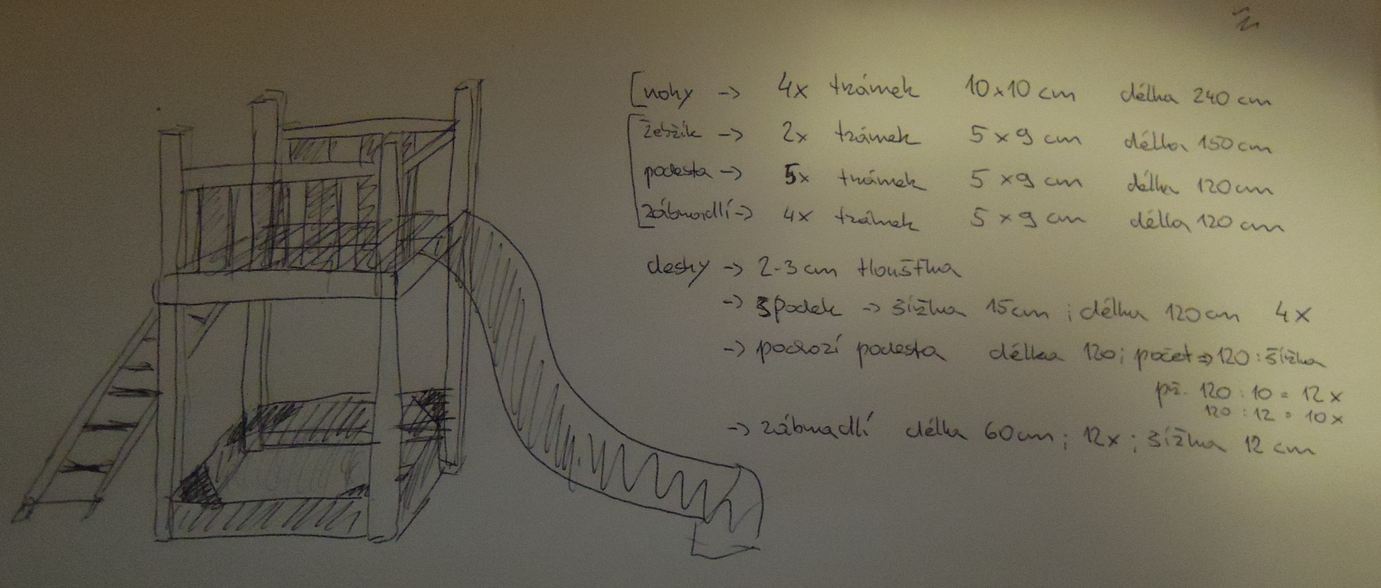 nohy -> 4x trámek 10x10 cm délka 240 cm
žebřík -> 2x trámek 5x9 cm délka 150 cm
podesta -> 5x trámek 5x9 cm délka 120 cm
zábradlí -> 4x trámek 5x9 cm délka 120 cm
desky -> 2-3 cm tloušťka
-> spodek -> šířka 15 cm ; délka 120 cm 4x
-> podrozí podesta délka 120 ; počet => 120 : šířka
př. 120 : 10 = 12x
120 : 12 = 10x
-> zábradlí délka 60 cm ; 12x ; šířka 12 cm